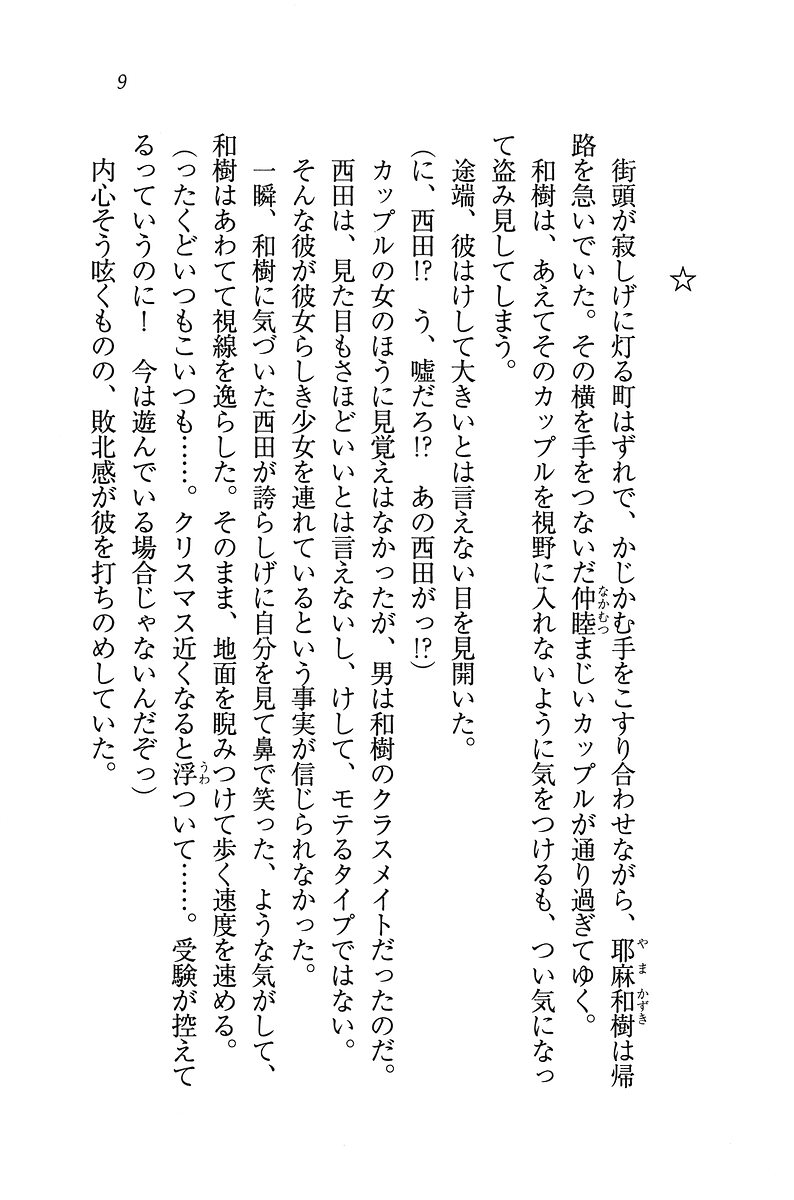 9
☆
街頭が寂しげに灯る町はずれで、かじかむ手をこすり合わせながら、耶麻和樹は帰
路を急いでいた。その横を手をつないだ仲睦まじいカップルが通り過ぎてゆく。
和樹は、あえてそのカップルを視野に入れないように気をつけるも、つい気になっ
て盗み見してしまう。
途端、彼はけして大きいとは言えない目を見開いた。
(に、西田!? う、嘘だろ!? あの西田がっ!?)
カップルの女のほうに見覚えはなかったが、男は和樹のクラスメイトだったのだ。
西田は、見た目もさほどいいとは言えないし、けして、モテるタイプではない。
そんな彼が彼女らしき少女を連れているという事実が信じられなかった。
一瞬、和樹に気づいた西田が誇らしげに自分を見て鼻で笑った、ような気がして、
和樹はあわてて視線を逸らした。そのまま、地面を睨みつけて歩く速度を速める。
(ったくどいつもこいつも……。クリスマス近くなると浮ついて……。受験が控えて
るっていうのに! 今は遊んでいる場合じゃないんだぞっ)
内心そう呟くものの、敗北感が彼を打ちのめしていた。